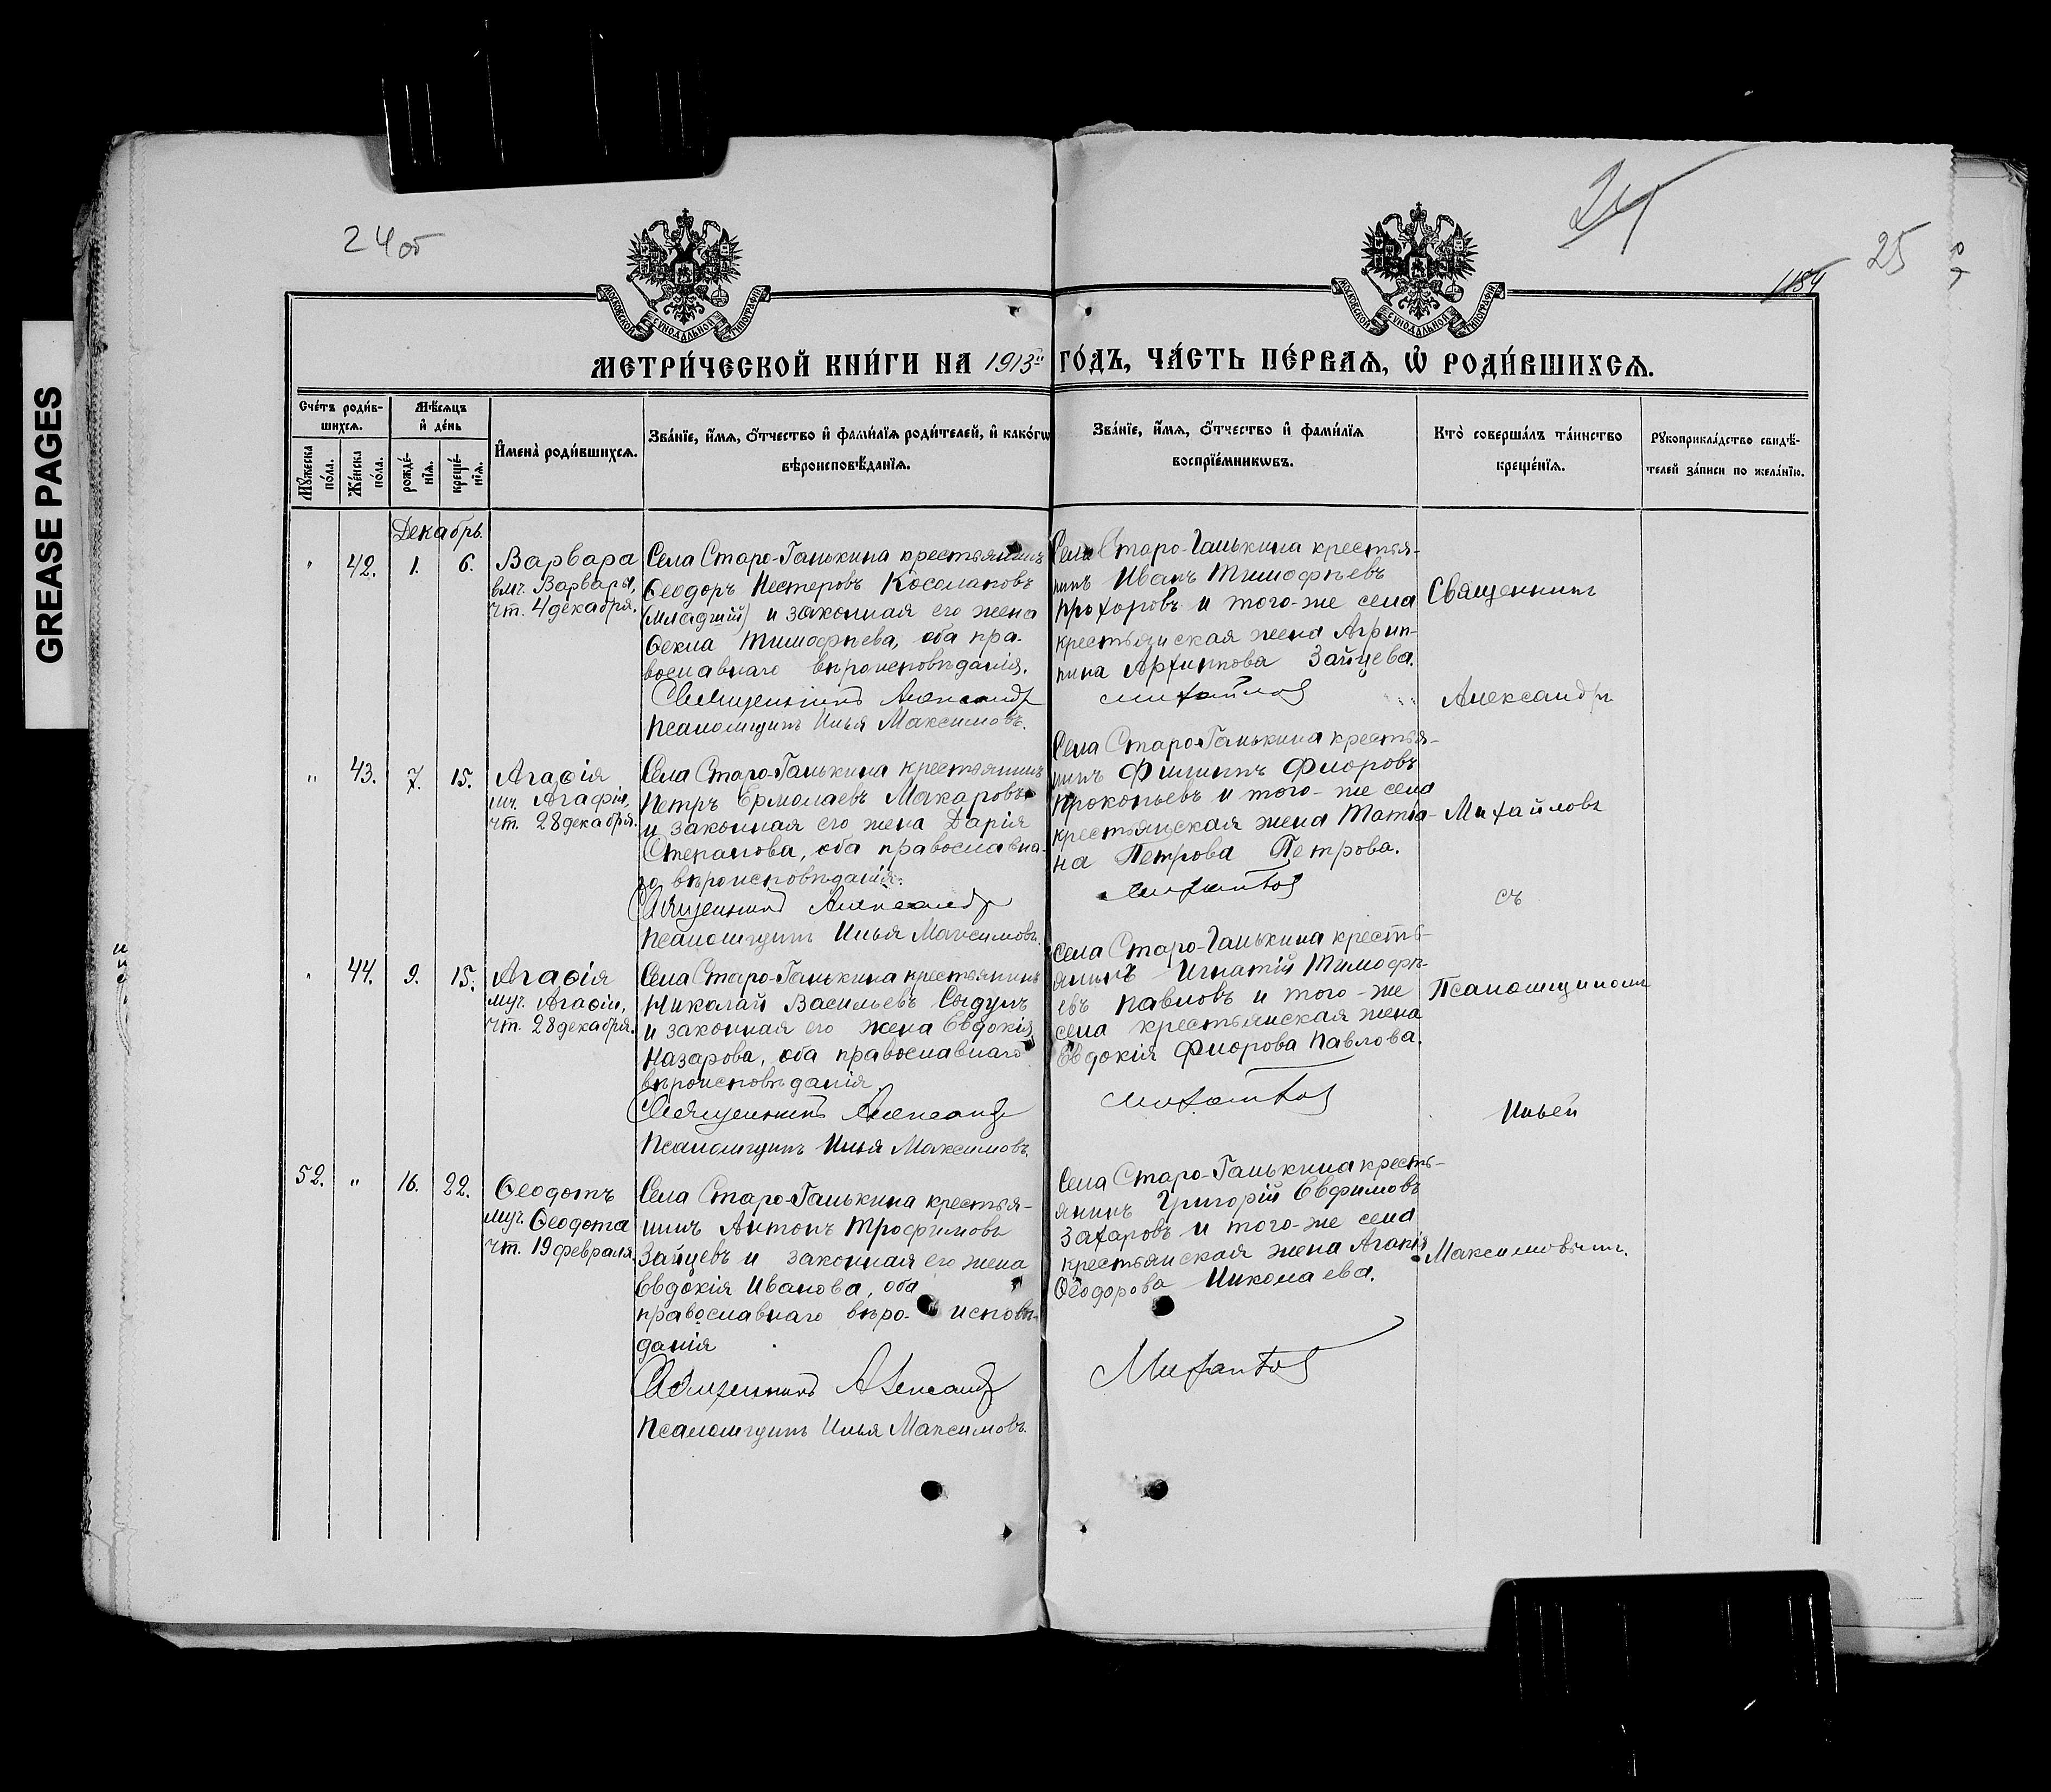 GREASE PAGES
24 об
24
25
1184
МОСКОВСКОЙ СУНОДАЛЬНОЙ ТИПОГРАФІИ
МОСКОВСКОЙ СУНОДАЛЬНОЙ ТИПОГРАФІИ
МЕТРИ́ЧЕСКОЙ КНИ́ГИ НА 1913й ГО́ДЪ, ЧА́СТЬ ПЕ́РВАѦ, Ѡ РОДИ́ВШИХСѦ.
Сче́тъ роди́в-
шихсѧ.
Мꙋжеска по́ла.
Же́нска по́ла.
Мѣсѧцъ
и де́нь
рожде́-
нїѧ.
креще́-
нїѧ.
И҆мена̀ роди́вшихсѧ.
Зва́нїе, и҆́мѧ, ѻ҆́тчество и҆ фами́лїѧ роди́телей, и҆ како́гѡ
вѣроисповѣ́данїѧ.
Зва́нїе, и҆́мѧ, ѻ҆́тчество и҆ фами́лїѧ
воспрїе́мникѡвъ.
Кто̀ соверша́лъ та́инство
креще́нїѧ.
Рꙋкоприкла́дство свидѣ́-
телей за́писи по жела́нїю.
Декабрь.
" 42. 1. 6.
Варвара
вмч. Варвары,
чт. 4 декабря.
Села Старо-Ганькина крестьянинъ
Ѳеодоръ Нестеровъ Косолаповъ
(младшій) и законная его жена
Ѳекла Тимофѣева, оба пра-
вославнаго вѣроисповѣданія.
Священникъ Александръ
Псаломщикъ Илья Максимовъ.
Села Старо-Ганькина крестья-
нинъ Иванъ Тимофѣевъ
Прохоровъ и того-же села
крестьянская жена Агрип-
пина Архиппова Зайцева.
Михайловъ
Священникъ
Александръ
" 43. 7. 15.
Агаѳія
мч. Агафіи,
чт. 28 декабря.
Села Старо-Ганькина крестьянинъ
Петръ Ермолаевъ Макаровъ
и законная его жена Дарія
Степанова, оба православна-
го вѣроисповѣданія.
Священникъ Александръ
Псаломщикъ Илья Максимовъ.
Села Старо-Ганькина крестья-
нинъ Филиппъ Флоровъ
Прокопьевъ и того-же села
крестьянская жена Татіа-
на Петрова Петрова.
Михайловъ
Михайловъ
съ
" 44. 9. 15.
Агаѳія
муч. Агаѳіи,
чт. 28 декабря.
Села Старо-Ганькина крестьянинъ
Николай Васильевъ
и законная его жена Евдокія
Назарова, оба православнаго
вѣроисповѣданія.
Священникъ Александръ
Псаломщикъ Илья Максимовъ.
Села Старо-Ганькина кресть-
янинъ Игнатій Тимофѣ-
евъ Павловъ и того-же
села крестьянская жена
Евдокія Флорова Павлова.
Михайловъ
Псаломщикомъ
Ильей
52. " 16. 22.
Ѳеодотъ
муч. Ѳеодота
чт. 19 февраля.
Села Старо-Ганькина крестья-
нинъ Антонъ Трофимовъ
Зайцевъ и законная его жена
Евдокія Иванова, оба
православнаго вѣро- исповѣ-
данія
Священникъ Александръ
Псаломщикъ Илья Максимовъ.
Села Старо-Ганькина кресть-
янинъ Григорій Евфимовъ
Захаровъ и того-же села
крестьянская жена Агапія
Ѳеодорова Николаева.
Михайловъ
Максимовымъ.